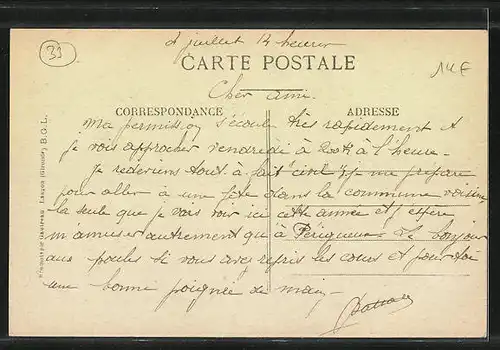 33
14 E
2 juillet 14 heures
CARTE POSTALE
Cher ami.
CORRESPONDANCE
ADRESSE
Ma permission s'écoule très rapidement et
je vois approcher vendredi à à l'heure -
Je redeviens tout à fait "civil" je me prépare
pour aller à une fête dans la commune voisine
la seule que je vais voir ici cette année et j'espère
m'amuser autrement qu'à Périgueux - Le bonjour
aux poules si vous avez repris les cours et pour toi
une bonne poignée de main -
Langon (Gironde) B.G.L.